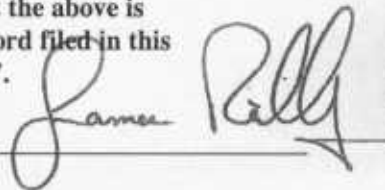 the above is
ord filed in this
.
James Reilly